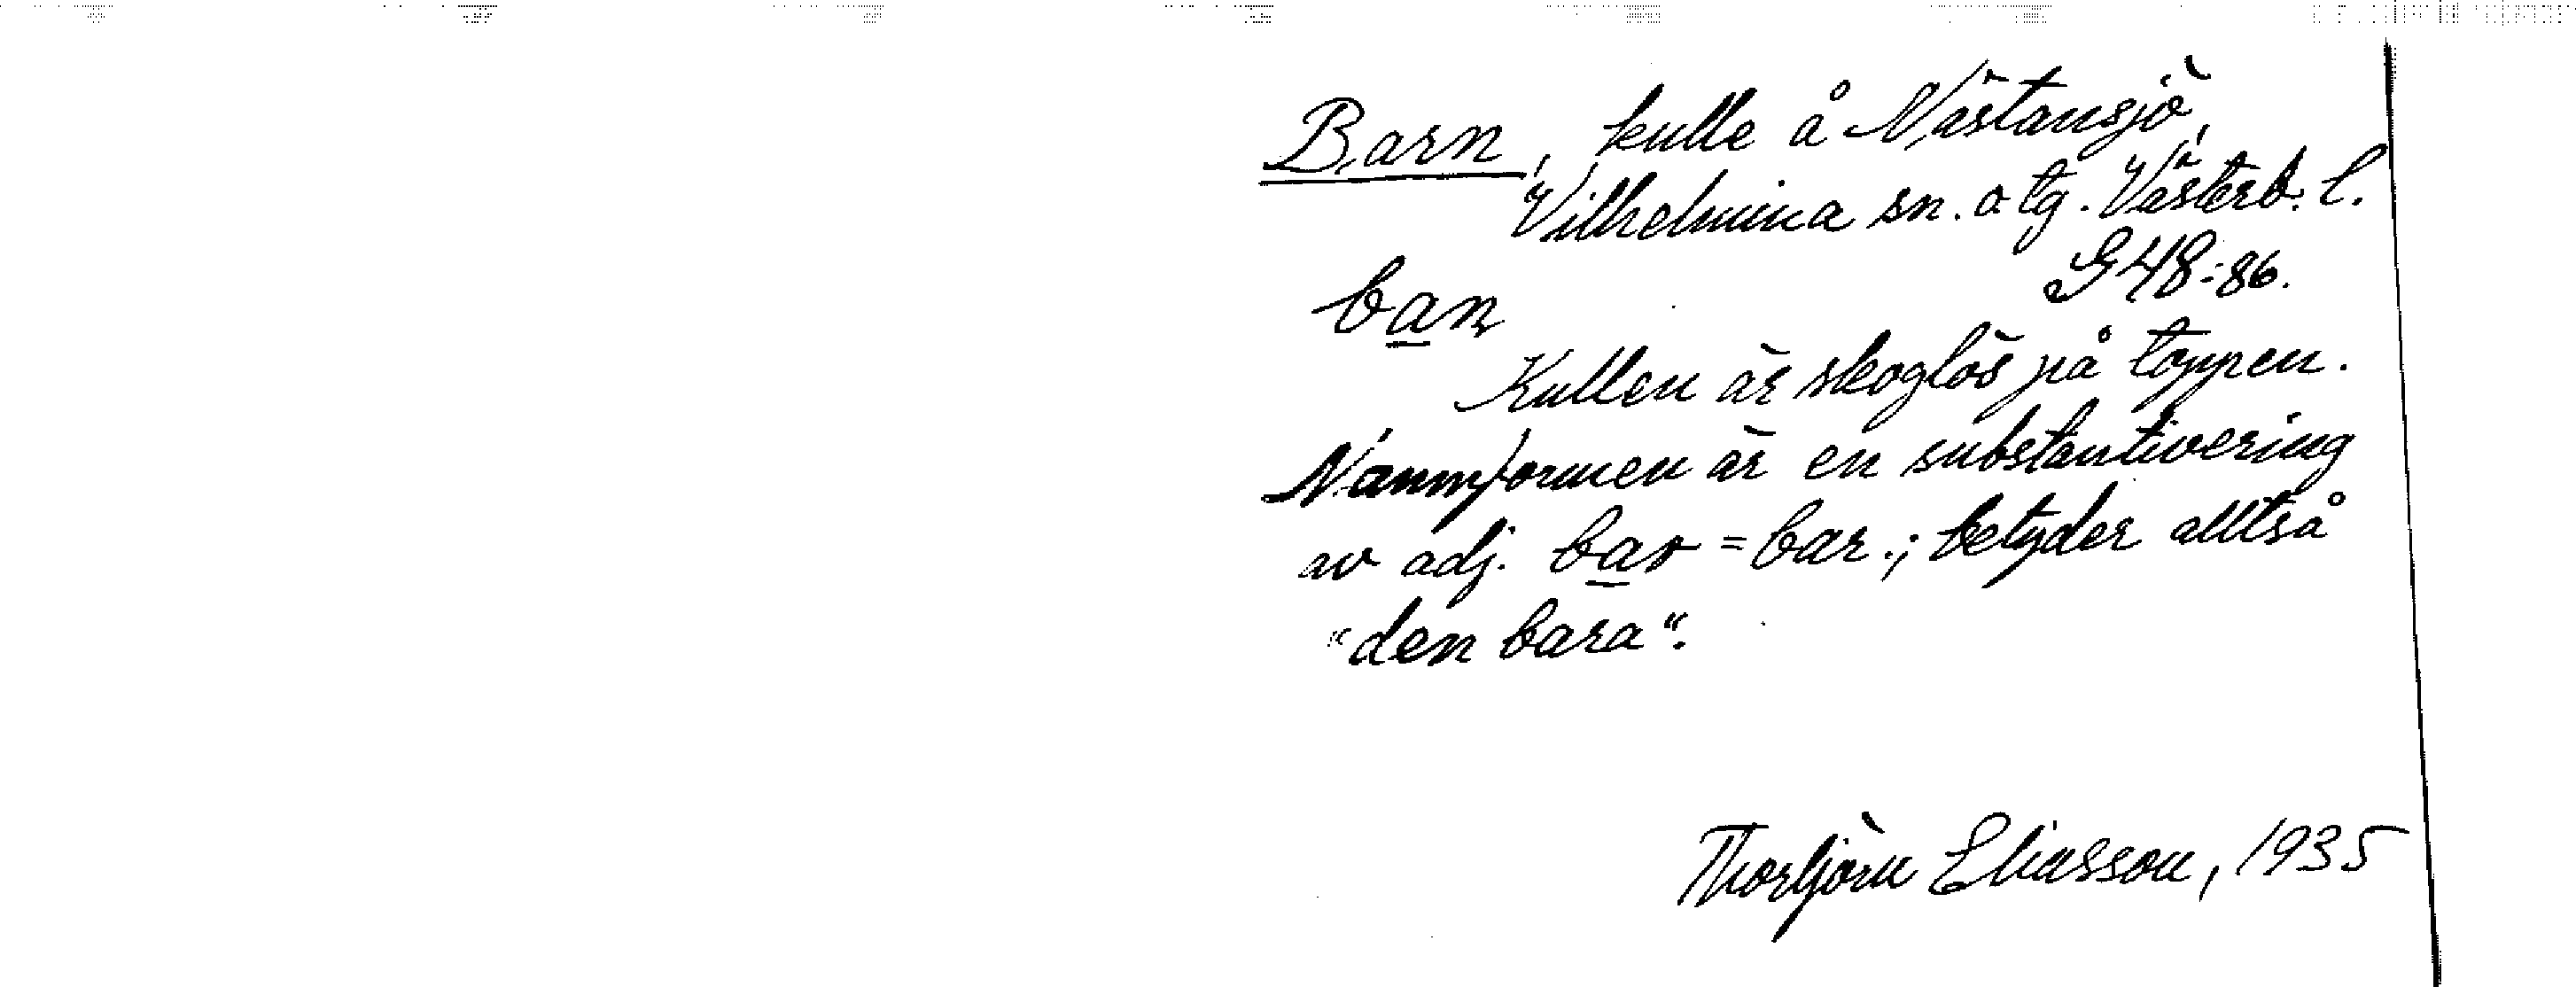 Barn, kulle å Nästansjö,
Vilhelmina sn. o tg. Västerb. l.
G48:86.
ban
Kullen är skoglös på toppen.
Namnformen är en substantivering
av adj. bar = bar.; betyder alltså
"den bara".
Thorbjörn Eliasson, 1935